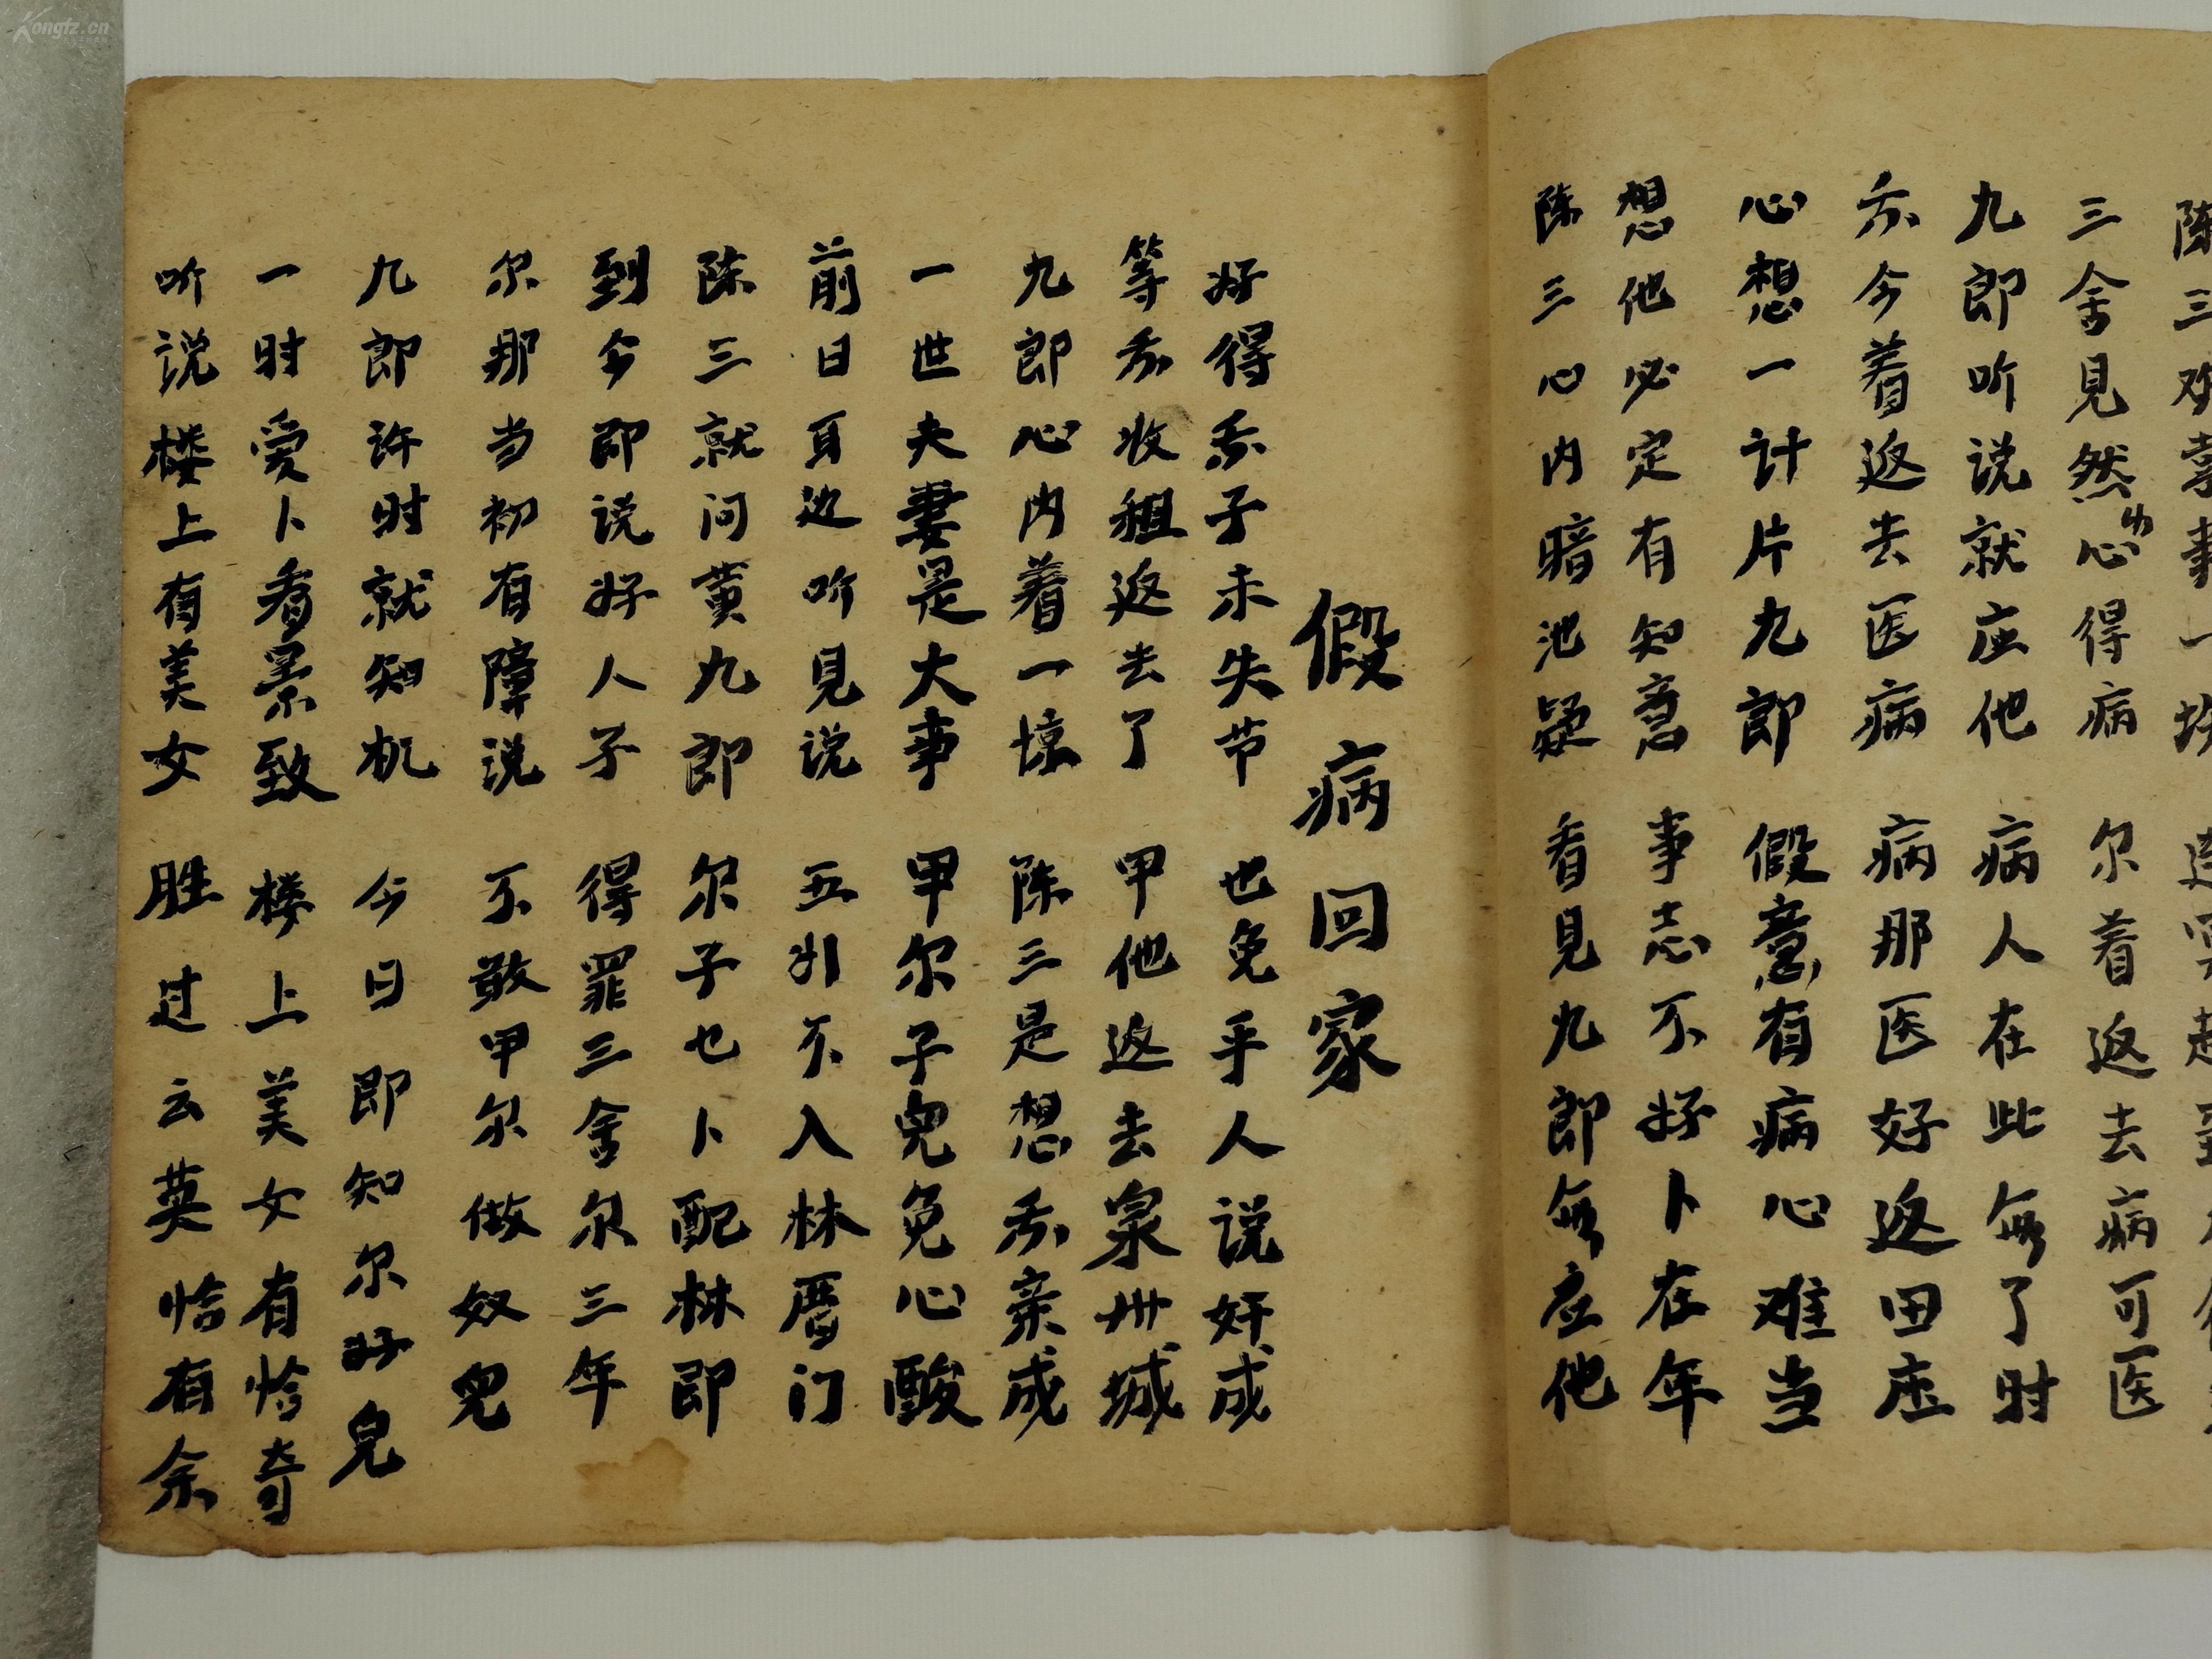 陈三心内暗池疑 看見九郎無应他
想他必定有知意 事志不好卜在年
心想一计片九郎 假意有病心难当
今着返去医病 病那医好返田庄
九郎听说就应他 病人在此無了时
三舍見然心内得病 尔着返去病可医
陈三
假病回家
好得 子未失节 也免乎人说奸成
等 收租返去了 甲他返去泉州城
九郎心内着一惊 陈三是想 亲成
一世夫妻是大事 甲尔子児免心酸
前日耳边听見说 五 不入林厝门
陈三就问黄九郎 尔子乜卜配林郎
到今即说好人子 得罪三舍尔三年
尔那当初有障说 不敢甲尔做奴児
九郎许时就知机 今日即知尔好児
一时爱卜看景致 楼上美女有恰奇
听说楼上有美女 胜过云英恰有余
Kongfz.cn